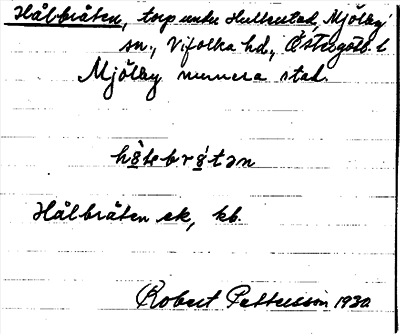 Hålbråten, torp under Hulterstad, Mjölby
sn., Vifolka hd., Östergötl. l
Mjölby numera stad.
hå̀lsbrǻtən
Hålbråten ek, kb.
Robert Pettersson 1930